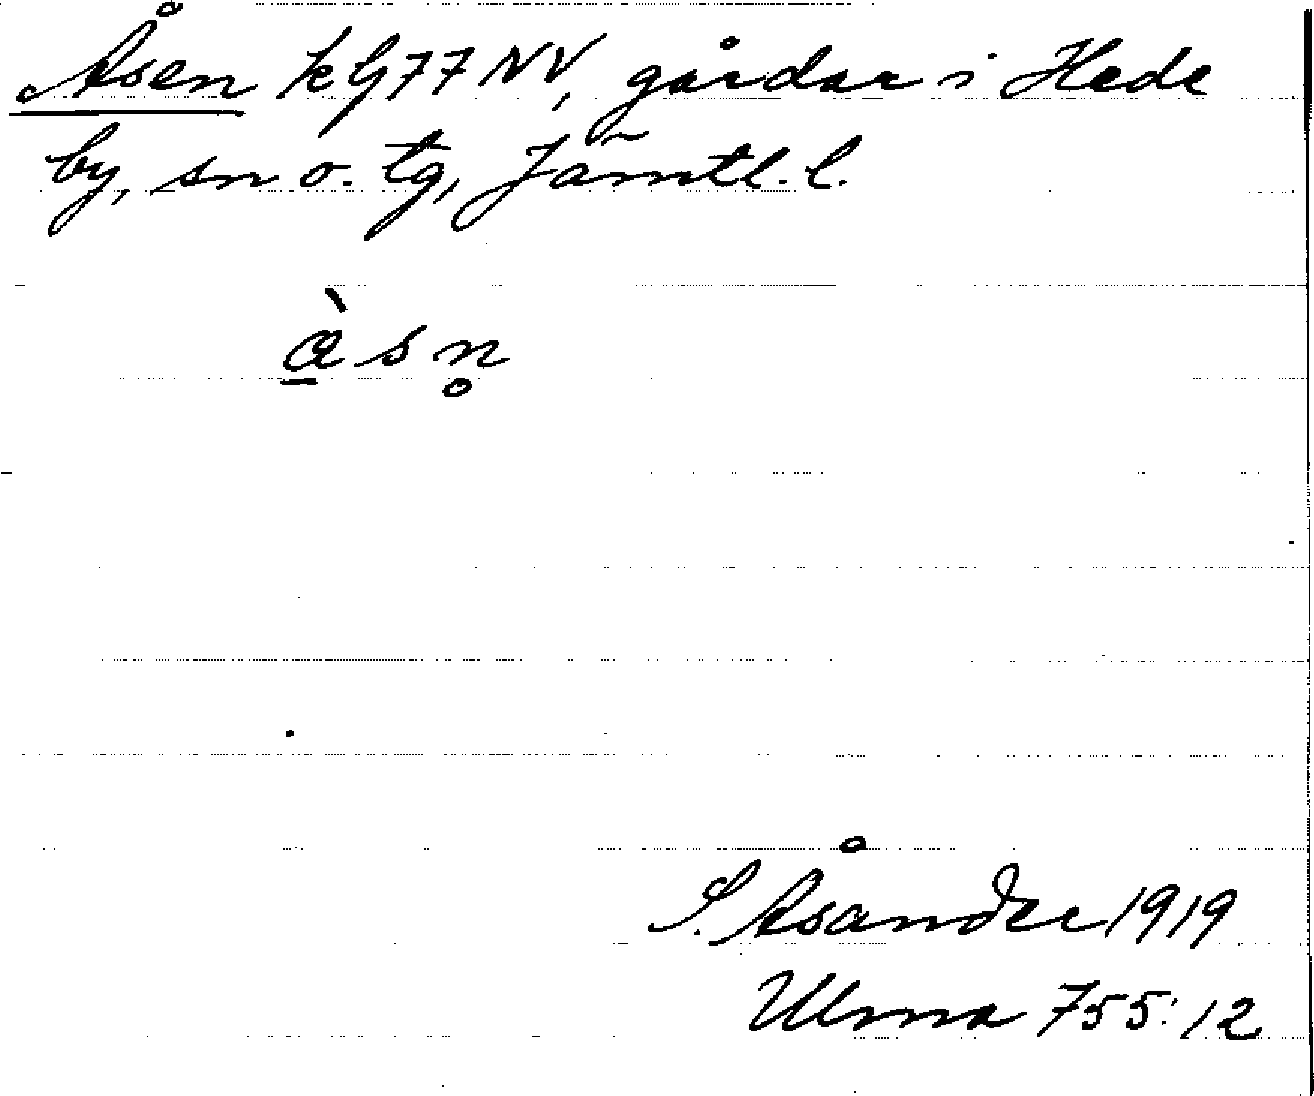 Åsen kG77NV, gårdar i Hede
by, sn o. tg, Jämtl. l.
à̱ s n̥
S. Åsander 1919
Ulma 755:12